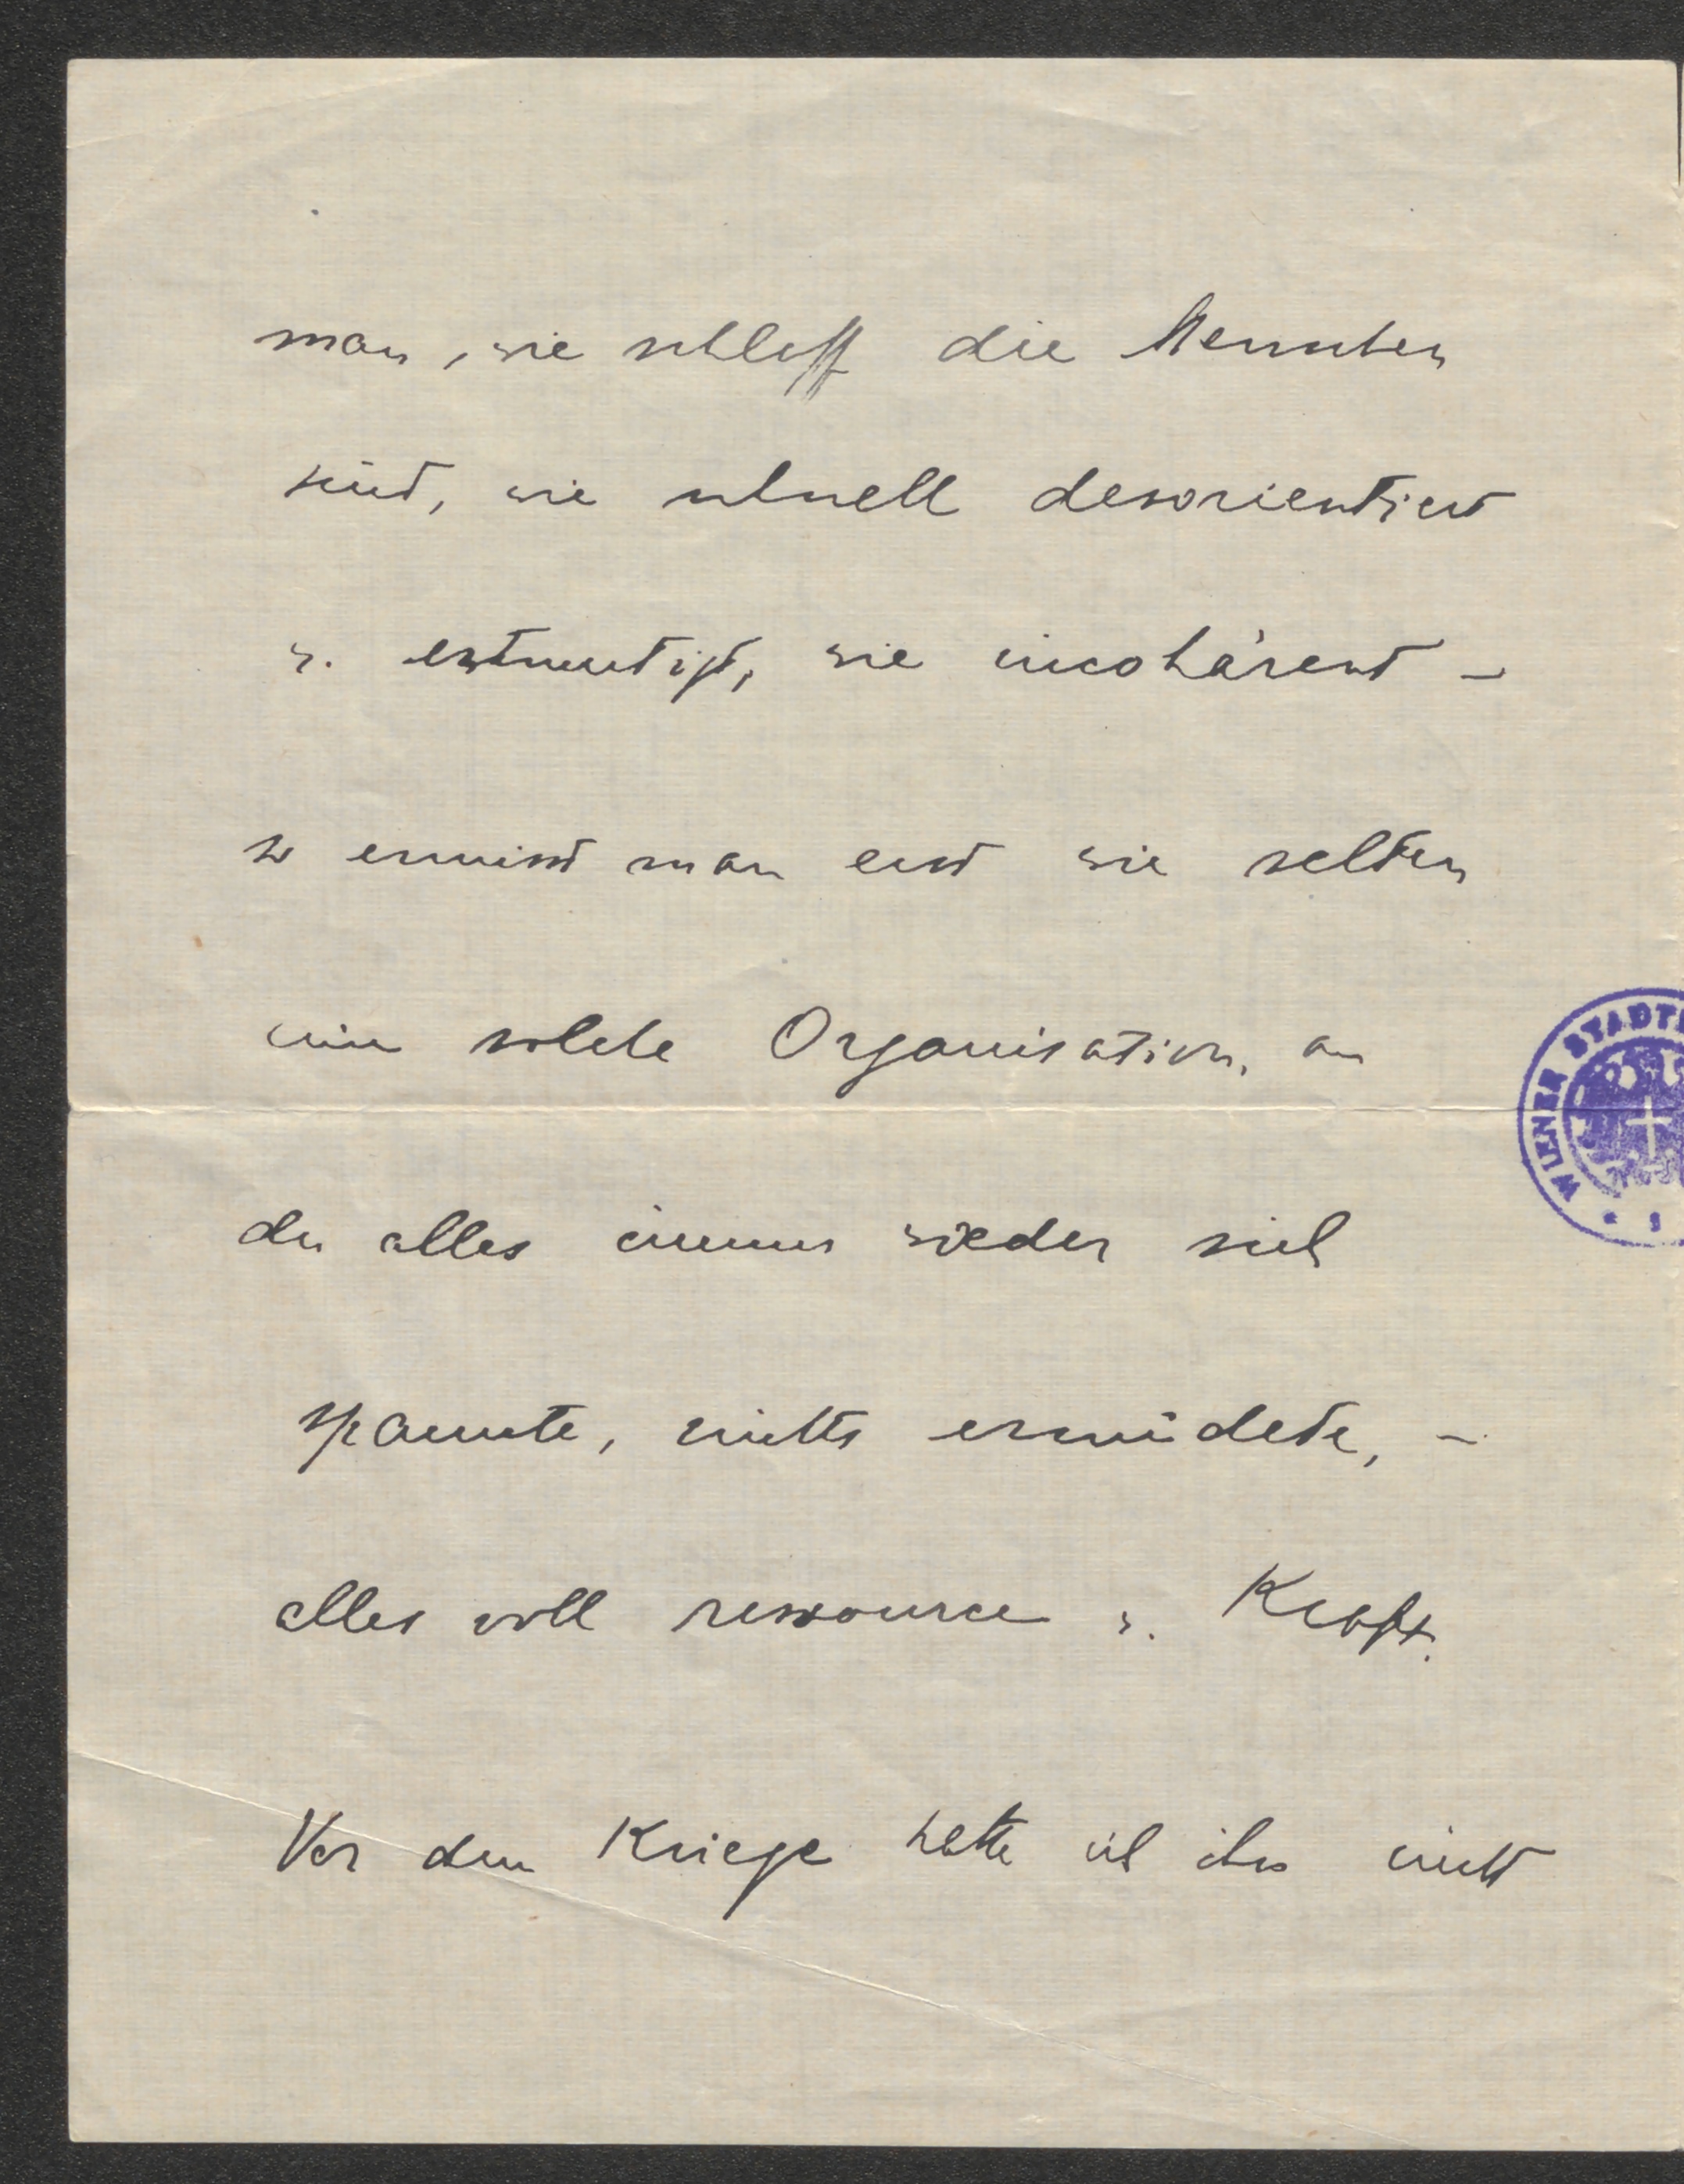 man, wie schlaff die Menschen
sind, wie schnell desorientiert
u. entmutigt, wie incohärent –
so ermisst man erst wie selten
eine solche Organisation, an
der alles immer wieder sich
spannte, nichts ermüdete, –
alles voll ressource u. Kraft.
Vor dem Kriege hatte ich ihn nicht
WIENER STADT